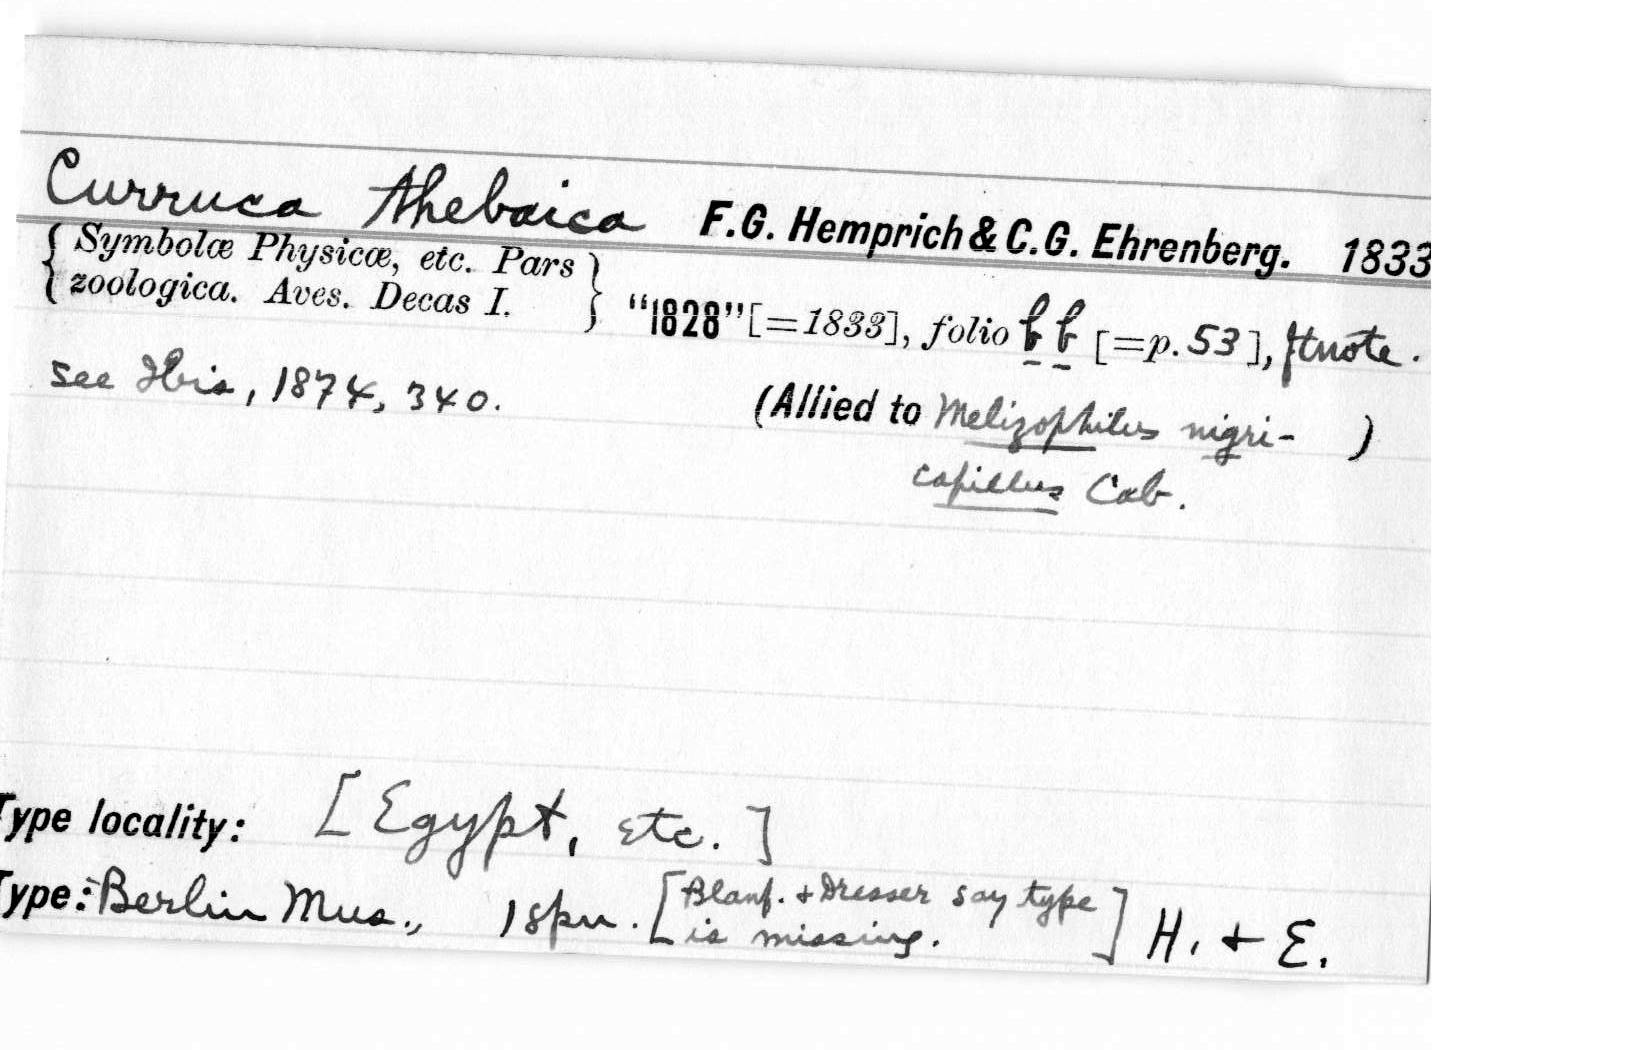 Curruca thebaica F.G. Hemprich & C.G. Ehrenberg. 1833
{ Symbolæ Physicæ, etc. Pars
zoologica. Aves. Decas I. } "1828" [=1833], folio bb [=p. 53], ftnote.
see Ibis, 1874, 340. (Allied to Melizophilus nigri- )
capillus Cab.
Type locality: [Egypt, etc.]
Type: Berlin Mus., 1 spn. [Blanf. + Dresser say type
is missing.] H. + E.